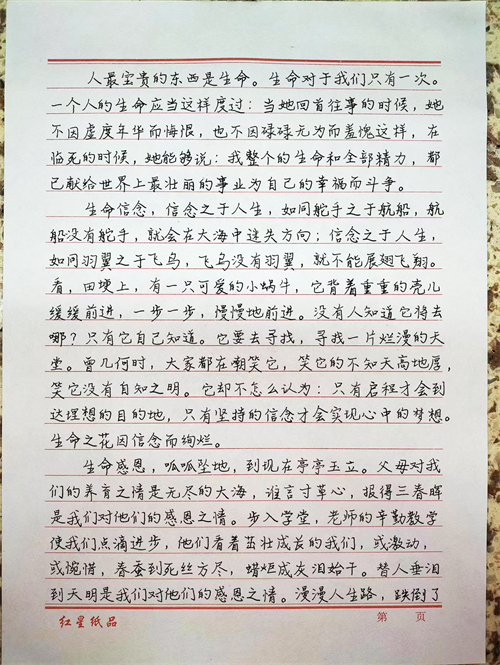 人最宝贵的东西是生命。生命对于我们只有一次。
一个人的生命应当这样度过：当她回首往事的时候，她
不因虚度年华而悔恨，也不因碌碌无为而羞愧这样，在
临死的时候，她能够说：我整个的生命和全部精力，都
已献给世界上最壮丽的事业为自己的幸福而斗争。
生命信念，信念之于人生，如同舵手之于航船，航
船没有舵手，就会在大海中迷失方向；信念之于人生，
如同羽翼之于飞鸟，飞鸟没有羽翼，就不能展翅飞翔。
看，田埂上，有一只可爱的小蜗牛，它背着重重的壳儿
缓缓前进，一步一步，慢慢地前进。没有人知道它将去
哪？只有它自己知道。它要去寻找，寻找一片烂漫的天
堂。曾几何时，大家都在嘲笑它，笑它的不知天高地厚，
笑它没有自知之明。它却不怎么认为：只有启程才会到
达理想的目的地，只有坚持的信念才会实现心中的梦想。
生命之花因信念而绚烂。
生命感恩，呱呱坠地，到现在亭亭玉立。父母对我
们的养育之情是无尽的大海，谁言寸草心，报得三春晖
是我们对他们的感恩之情。步入学堂，老师的辛勤教学
使我们点滴进步，他们看着茁壮成长的我们，或激动，
或惋惜，春蚕到死丝方尽，蜡炬成灰泪始干。替人垂泪
到天明是我们对他们的感恩之情。漫漫人生路，跌倒了
红星纸品
第 页